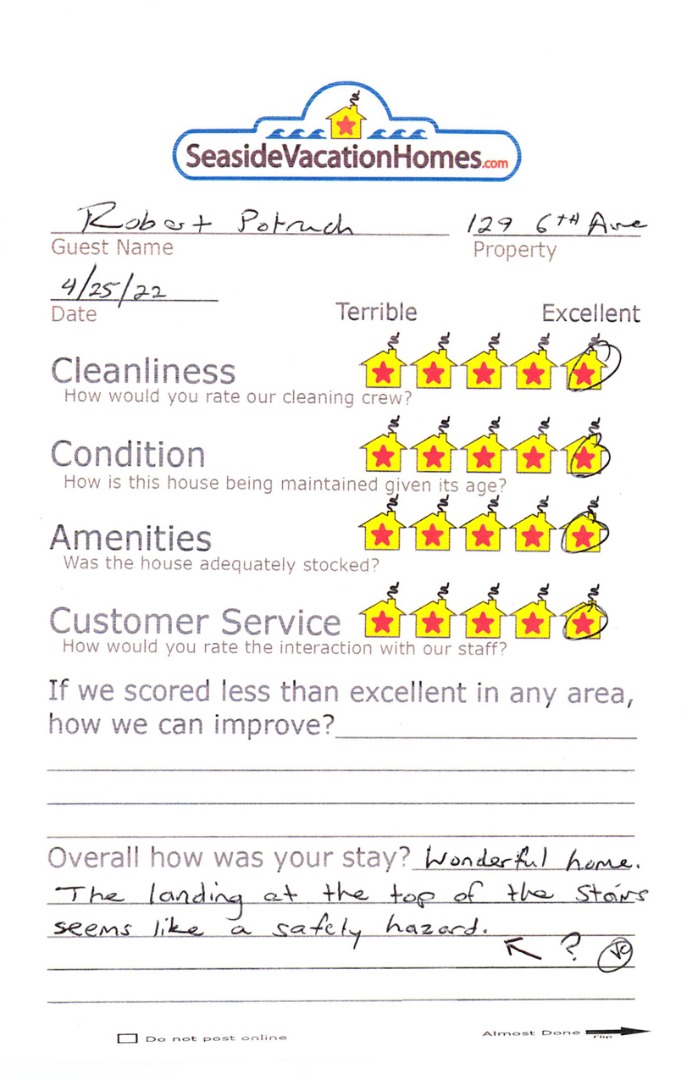 SeasideVacationHomes.com
Robert Potruch 129 6TH Ave
Guest Name Property
4/25/22
Date Terrible Excellent
Cleanliness
How would you rate our cleaning crew?
Condition
How is this house being maintained given its age?
Amenities
Was the house adequately stocked?
Customer Service
How would you rate the interaction with our staff?
If we scored less than excellent in any area,
how we can improve?
Overall how was your stay? Wonderful home.
The landing at the top of the stairs
seems like a safety hazard.
?
Do not post online Almost Done Flip